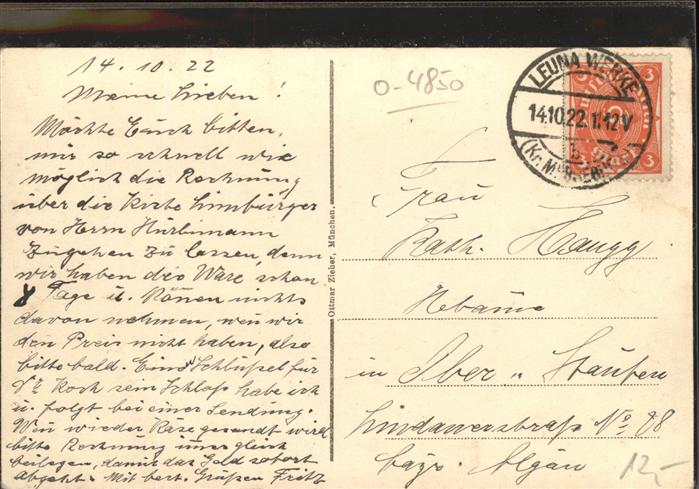 14.10.22
Meine Lieben!
Möchte Euch bitten,
mir so schnell wie
möglich die Rechnung
über die Kiste Limburger
von Herrn Hürlimann
zugehen zu lassen, denn
wir haben die Ware schon
8 Tage u. könen nichts
davon nehmen, wen wir
den Preis nicht haben, also
bitte bald. Eine Schlüssel für
Koch sein Schloß habe ich
u. folgt bei einer Sendung.
Wen wieder Käse gesandt wird
bitte Rechnung imer gleich
beilegen, damit das Geld sofort
abgeht. Mit best. Grüßen Fritz
Ottmar Zieher, München.
0-4850
LEUNA WERKE
14.10.22.11.12V
b
(Kr. MERSEBURG)
3 3
3 3
Mark
Frau
Kath. Haugg
Hebame
in Ober-Staufen
Lindauerstraße No 88
bayr. Algäu
12,-